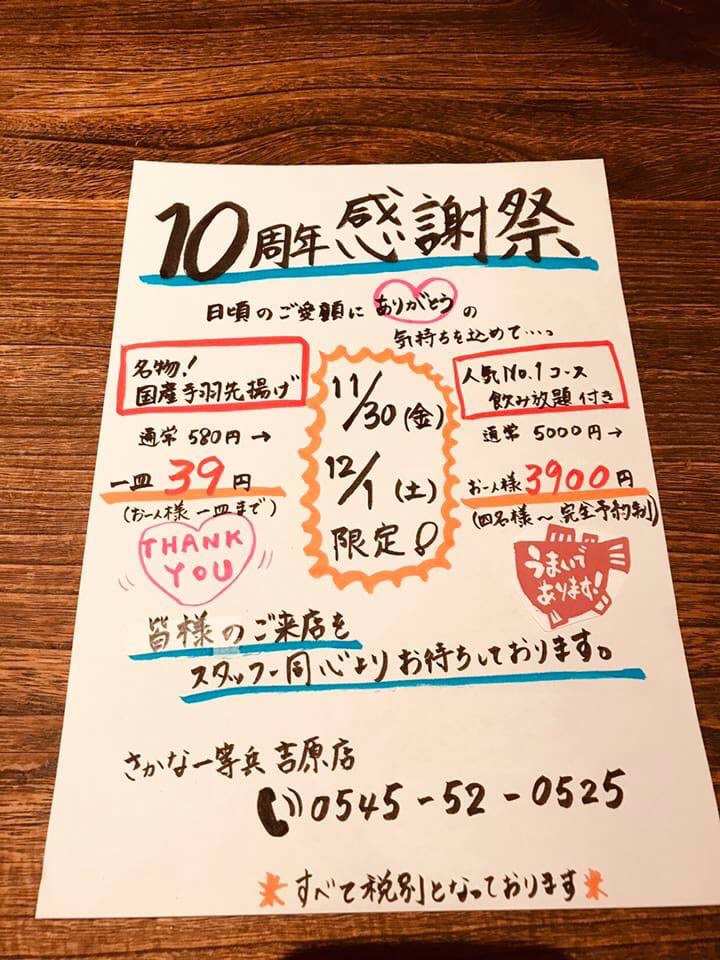 10周年感謝祭
日頃のご愛顧に ありがとう の
気持ちを込めて…。
名物!
国産手羽先揚げ
通常 580円→
一皿 39円
(お一人様 一皿まで)
11/30(金)
12/1(土)
限定!
人気No.1コース
飲み放題付き
通常 5000円→
お一人様 3900円
(四名様~完全予約制)
THANK
YOU
うまいで
あります!
皆様のご来店を
スタッフ一同心よりお待ちしております。
さかな一等兵 吉原店
0545-52-0525
すべて税別となっております